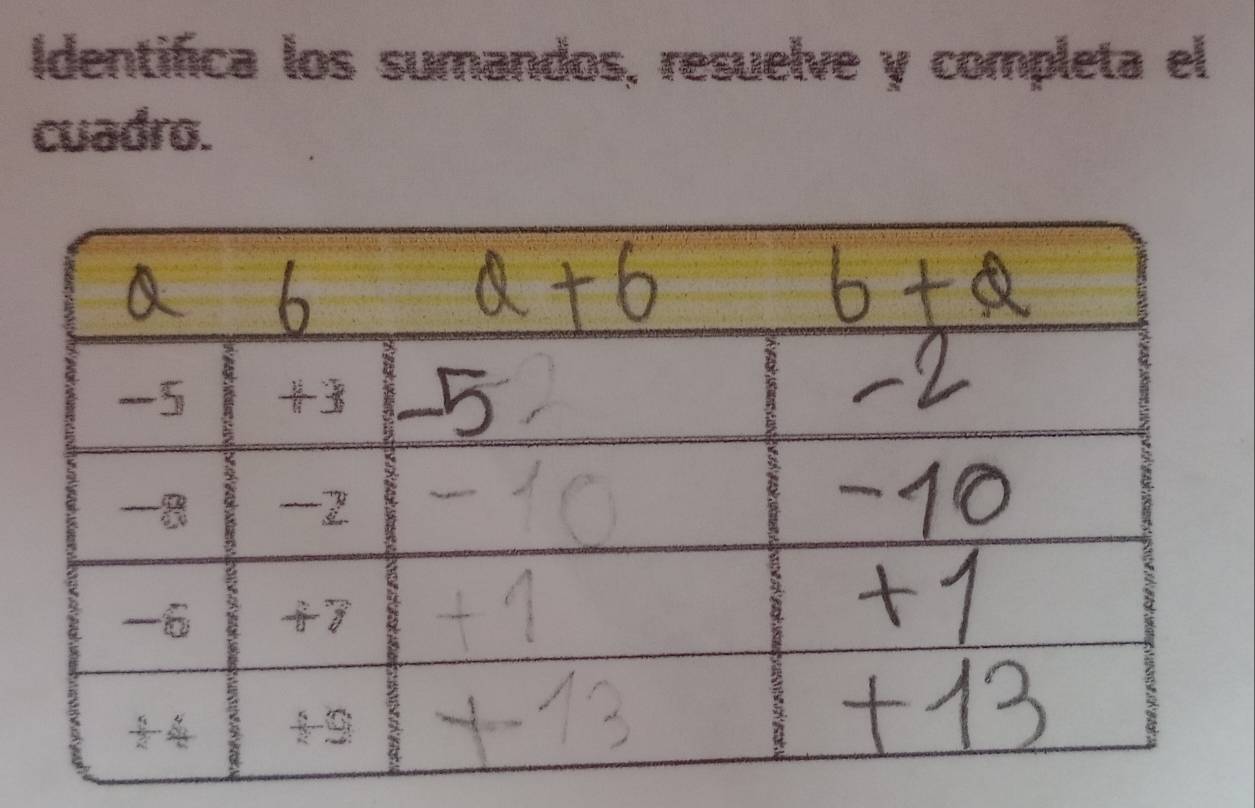 Identifica los sumandos, resuelve y completa el
cuadro.
a b a+b b+a
-5 +3 -5 -2
-8 -2 -10 -10
-6 +7 +1 +1
+4 +9 +13 +13